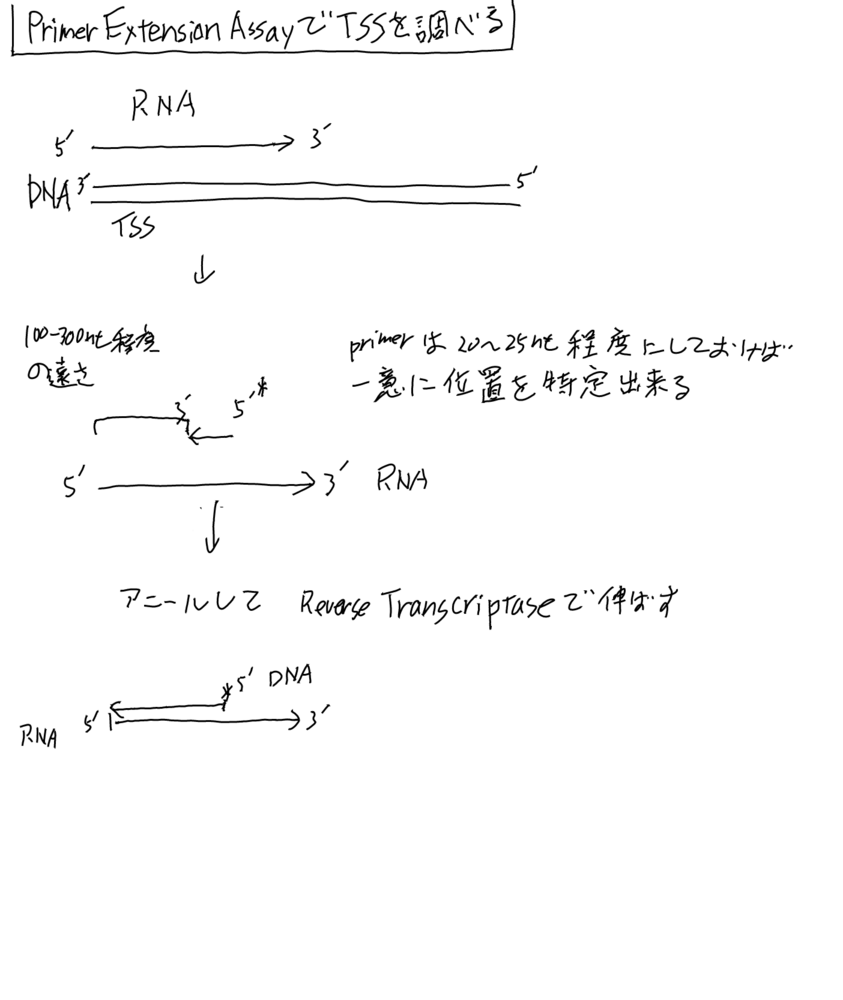 Primer Extension AssayでTSSを調べる
RNA
5' 3'
DNA 3' 5'
TSS
100-300nt程度
の遠さ
primerは20~25nt程度にしておけば
一意に位置を特定出来る
3' 5'*
5' 3' RNA
アニールして Reverse Transcriptaseで伸ばす
*5' DNA
RNA 5' 3'